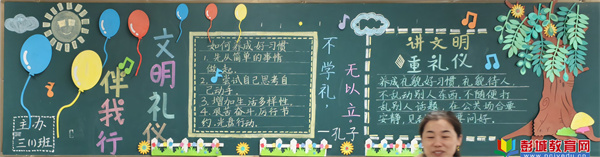 文明礼仪
伴我行
主办
三(1)班
如何养成好习惯
1. 先从简单的事情
做起。
2. 尝试自己思考自
己动手。
3. 增加生活多样性。
4. 艰苦奋斗,厉行节
约,光盘行动。
不学礼,
无以立
—孔子
讲文明
重礼仪
养成礼貌好习惯,礼貌待人,
不乱动别人东西,不随便打
乱别人话题,在公共场合要
安静,见
问好。
彭城教育网
pcjyxb.cn